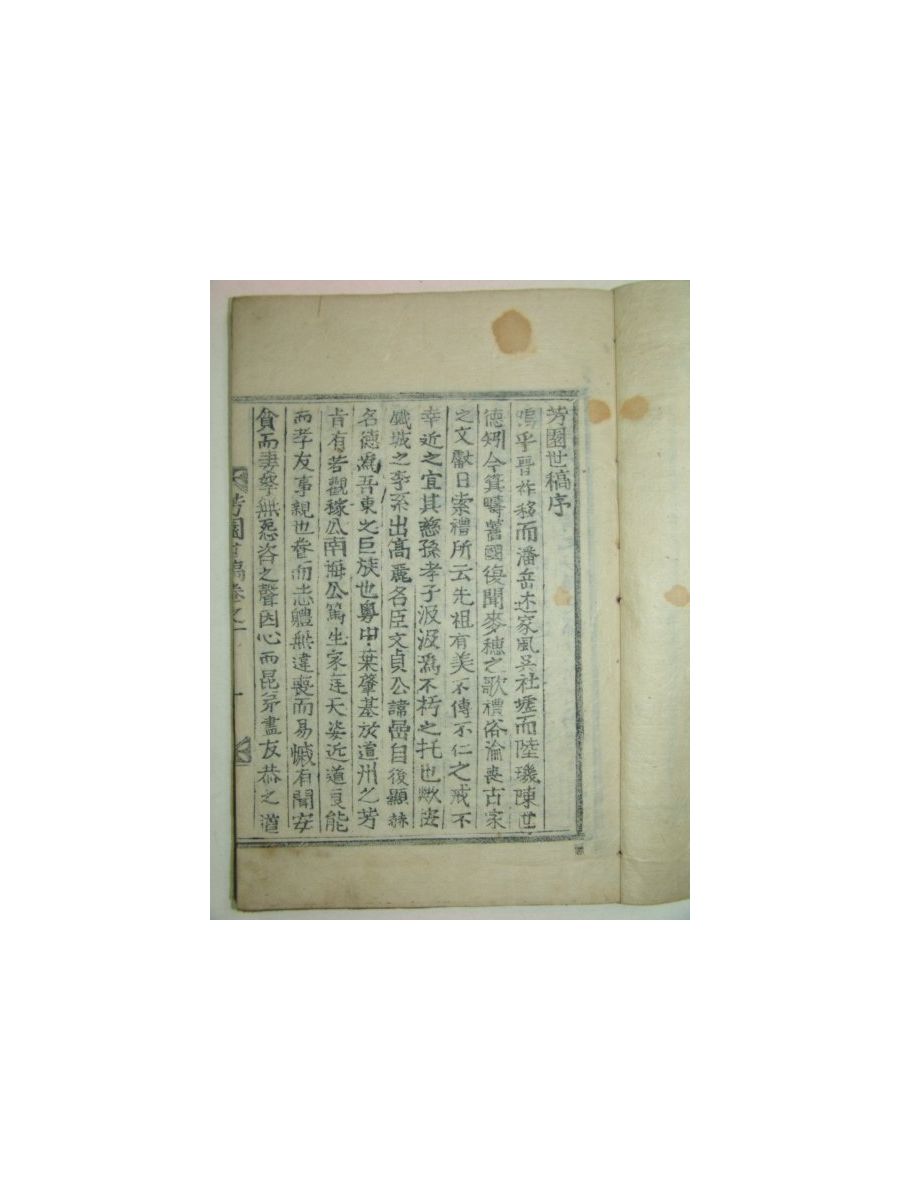 芳園世稿序
嗚乎晉祚移而潘岳述家風吳社墟而陸璣陳世
德矧今箕疇舊國復聞麥穗之歌禮俗淪喪古家
之文獻日索禮所云先祖有美不傳不仁之戒不
幸近之宜其慈孫孝子汲汲爲不朽之托也歟
城之李系出高麗名臣文貞公諱嵒自後顯赫
名德爲吾東之巨族也粤中葉肇基於道州之芳
旨有若觀稼公南海公篤生家庭天姿近道良能
而孝友事親也養而志體無違喪而易慽有聞安
貧而妻孥無怨咨之聲因心而昆弟盡友恭之道
芳園世稿卷之一